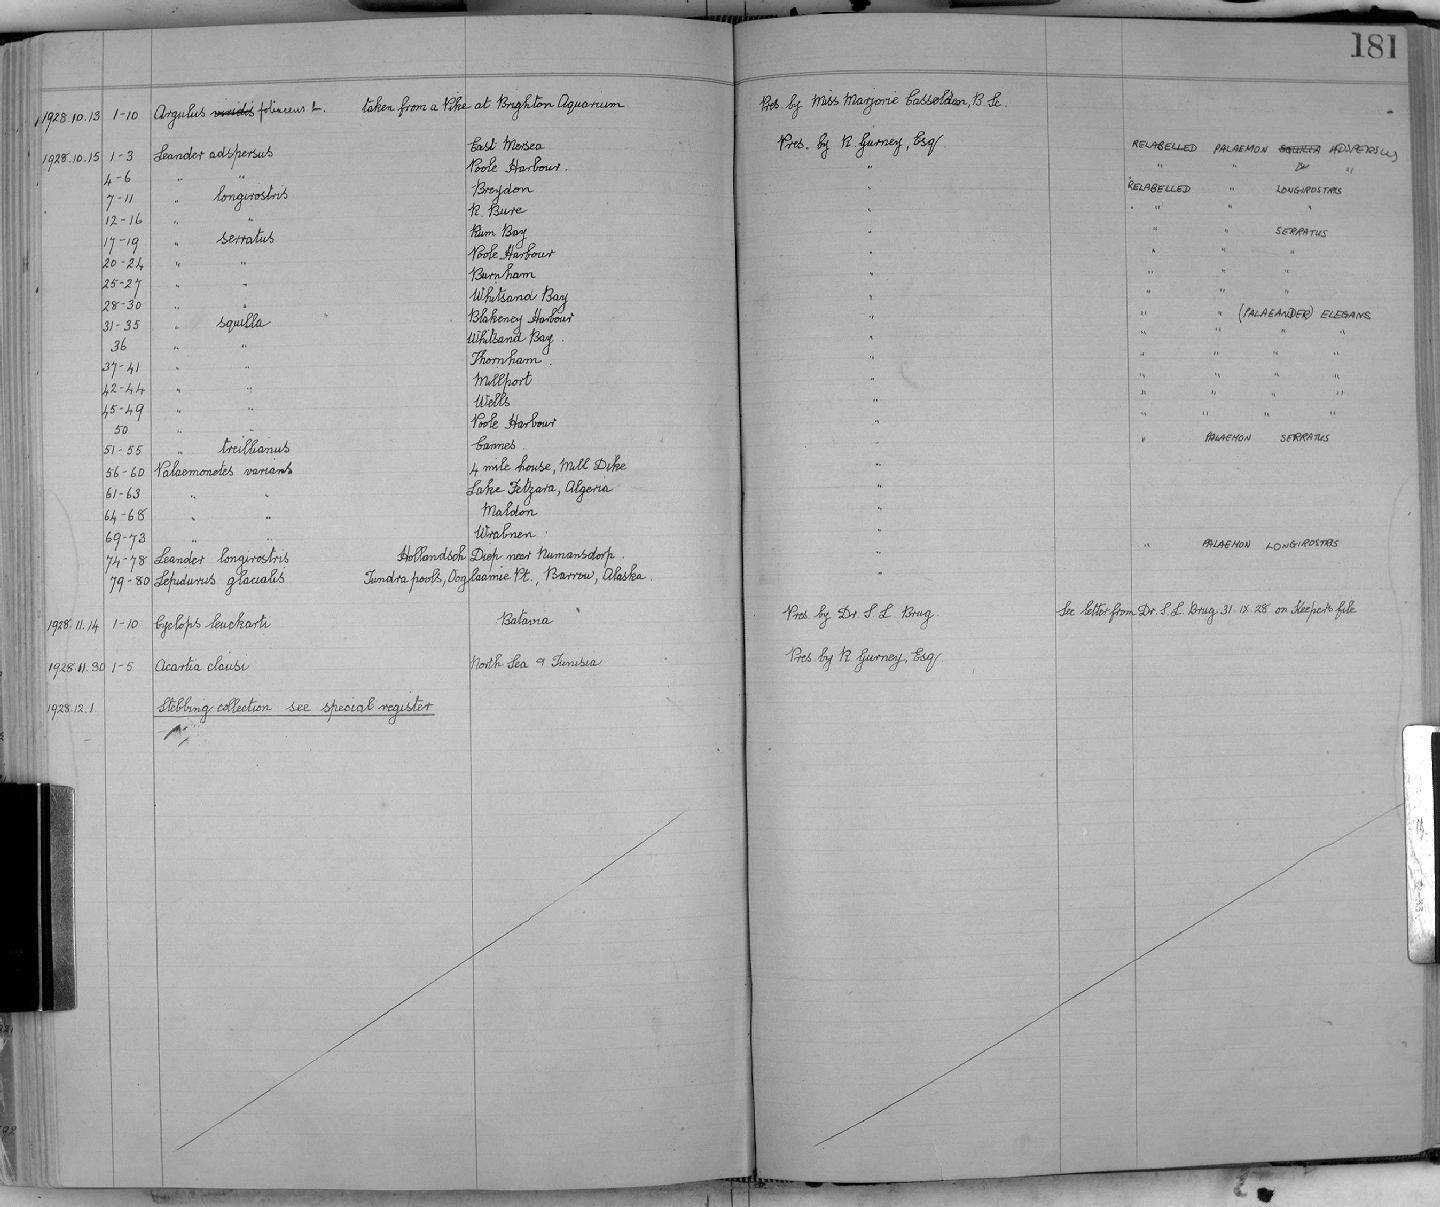 181
1928.10.13 1-10 Argulus viridis foliaceus L. taken from a Pike at Brighton Aquarium Pres. by Miss Marjorie B. Sc.
1928.10.15 1-3 Leander adspersus East Mersea Pres. by R. Gurney, Esq. RELABELLED PALAEMON SQUILLA ADSPERSUS
4-6 " " Poole Harbour. " " " " "
7-11 " longirostris Breydon " RELABELLED " LONGIROSTRIS
12-16 " " R. Bure " " " "
17-19 " serratus Rum Bay " " " SERRATUS
20-24 " " Poole Harbour " " " "
25-27 " " Burnham " " " "
28-30 " " Whitsand Bay " " " "
31-35 " squilla Blakeney Harbour " " " (PALAEANDER) ELEGANS
36 " " Whitsand Bay. " " " " "
37-41 " " Thornham. " " " " "
42-44 " " Millport " " " " "
45-49 " " Wells " " " " "
50 " " Poole Harbour " " " " "
51-55 " treillianus Cannes " " PALAEMON SERRATUS
56-60 Palaemonetes varians 4 mile house, Mill Dike "
61-63 " " Lake Fetzara, Algeria "
64-68 " " Maldon "
69-73 " " "
74-78 Leander longirostris Hollandsch Diep near Numansdorp. " " PALAEMON LONGIROSTRIS
79-80 Lepidurus glacialis Tundra pools, Ooglaamie Pt., Barrow, Alaska. "
1928.11.14 1-10 Cyclops leuckarti Batavia Pres. by Dr. S. L. Brug See letter from Dr. S. L. Brug 31. IX. 28 on Keeper's file
1928.11.30 1-5 Acartia clausi North Sea & Tunisia Pres. by R. Gurney, Esq.
1928.12.1. Stebbing collection see special register